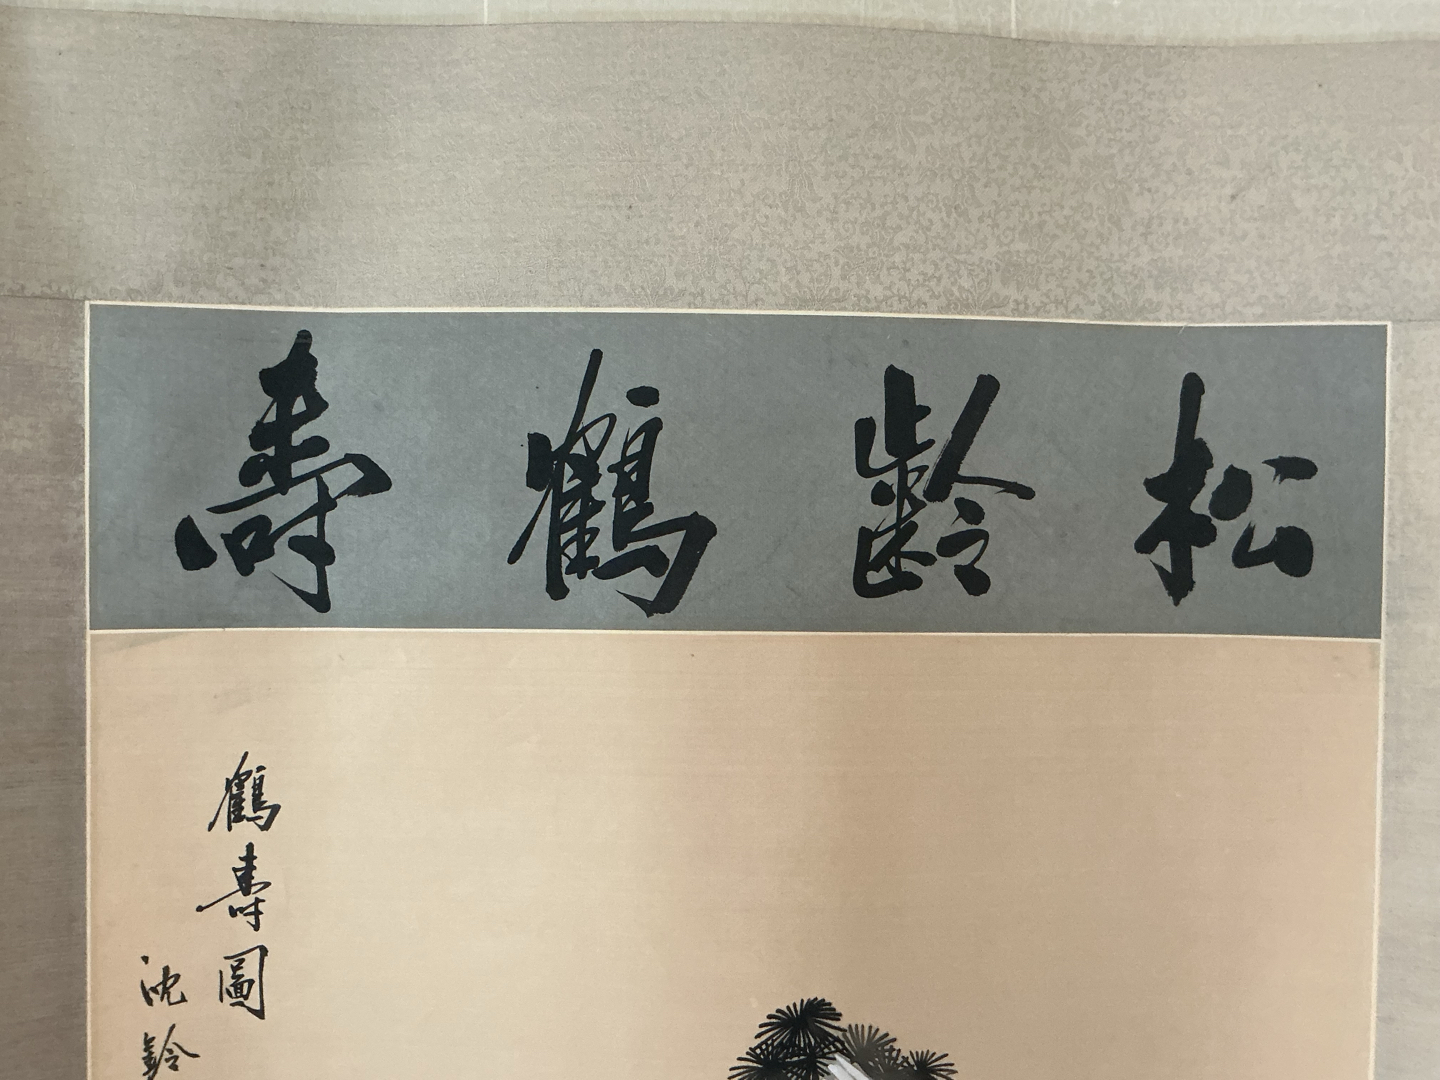 松齡鶴壽
鶴壽圖
沈銓